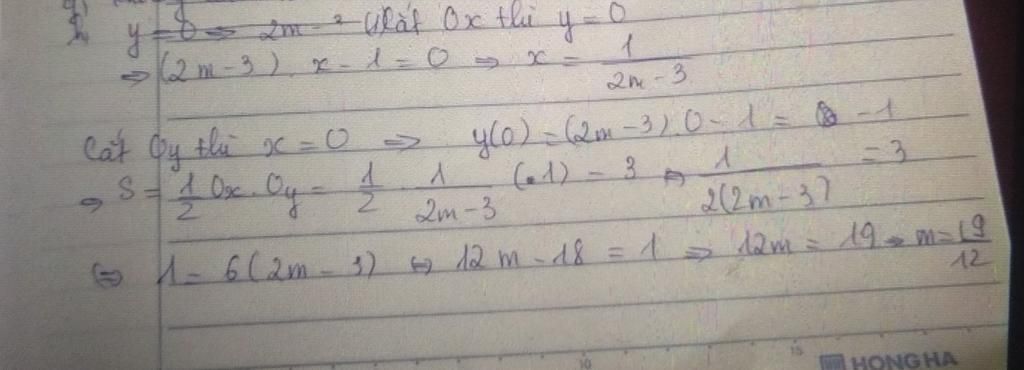 y = 0 ⇒ 2m - Cắt Ox thì y = 0
⇒ (2m - 3) . x - 1 = 0 ⇒ x = 1/(2m - 3)
Cắt Oy thì x = 0 ⇒ y(0) = (2m - 3).0 - 1 = -1
⇒ S = 1/2 Ox . Oy = 1/2 . 1/(2m - 3) (.1) = 3 ⇔ 1/(2(2m - 3)) = 3
⇔ 1 = 6(2m - 3) ⇔ 12m - 18 = 1 ⇒ 12m = 19 ⇒ m = 19/12
10 15
HONG HA